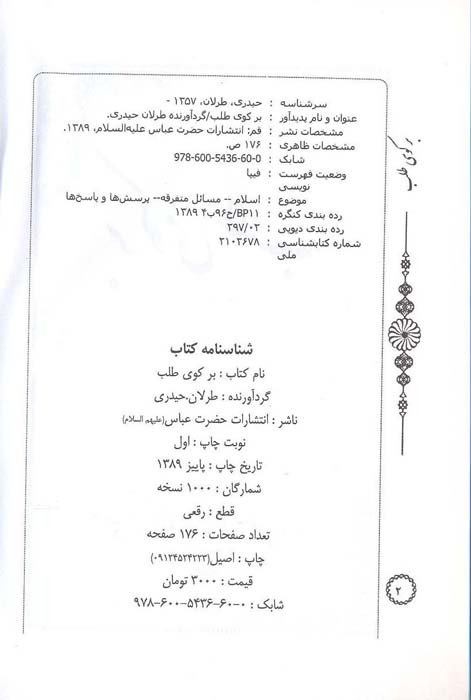 سرشناسه : حیدری، طرلان، ۱۳۵۷ -
عنوان و نام پدیدآور : بر کوی طلب/گردآورنده طرلان حیدری.
مشخصات نشر : قم: انتشارات حضرت عباس علیه‌السلام، ۱۳۸۹.
مشخصات ظاهری : ۱۷۶ ص.
شابک : 978-600-5436-60-0
وضعیت فهرست : فیپا
نویسی
موضوع : اسلام -- مسائل متفرقه-- پرسش‌ها و پاسخ‌ها
رده بندی کنگره : BP۱۱/ح۹۶ب۴ ۱۳۸۹
رده بندی دیویی : ۲۹۷/۰۲
شماره کتابشناسی : ۲۱۰۲۶۷۸
ملی
بر کوی طلب
شناسنامه کتاب
نام کتاب : بر کوی طلب
گردآورنده : طرلان.حیدری
ناشر : انتشارات حضرت عباس(علیهم السلام)
نوبت چاپ : اول
تاریخ چاپ : پاییز ۱۳۸۹
شمارگان : ۱۰۰۰ نسخه
قطع : رقعی
تعداد صفحات : ۱۷۶ صفحه
چاپ : اصیل(۰۹۱۲۴۵۲۴۲۲۳)
قیمت : ۳۰۰۰ تومان
شابک : ۰-۶۰-۵۴۳۶-۶۰۰-۹۷۸
۲